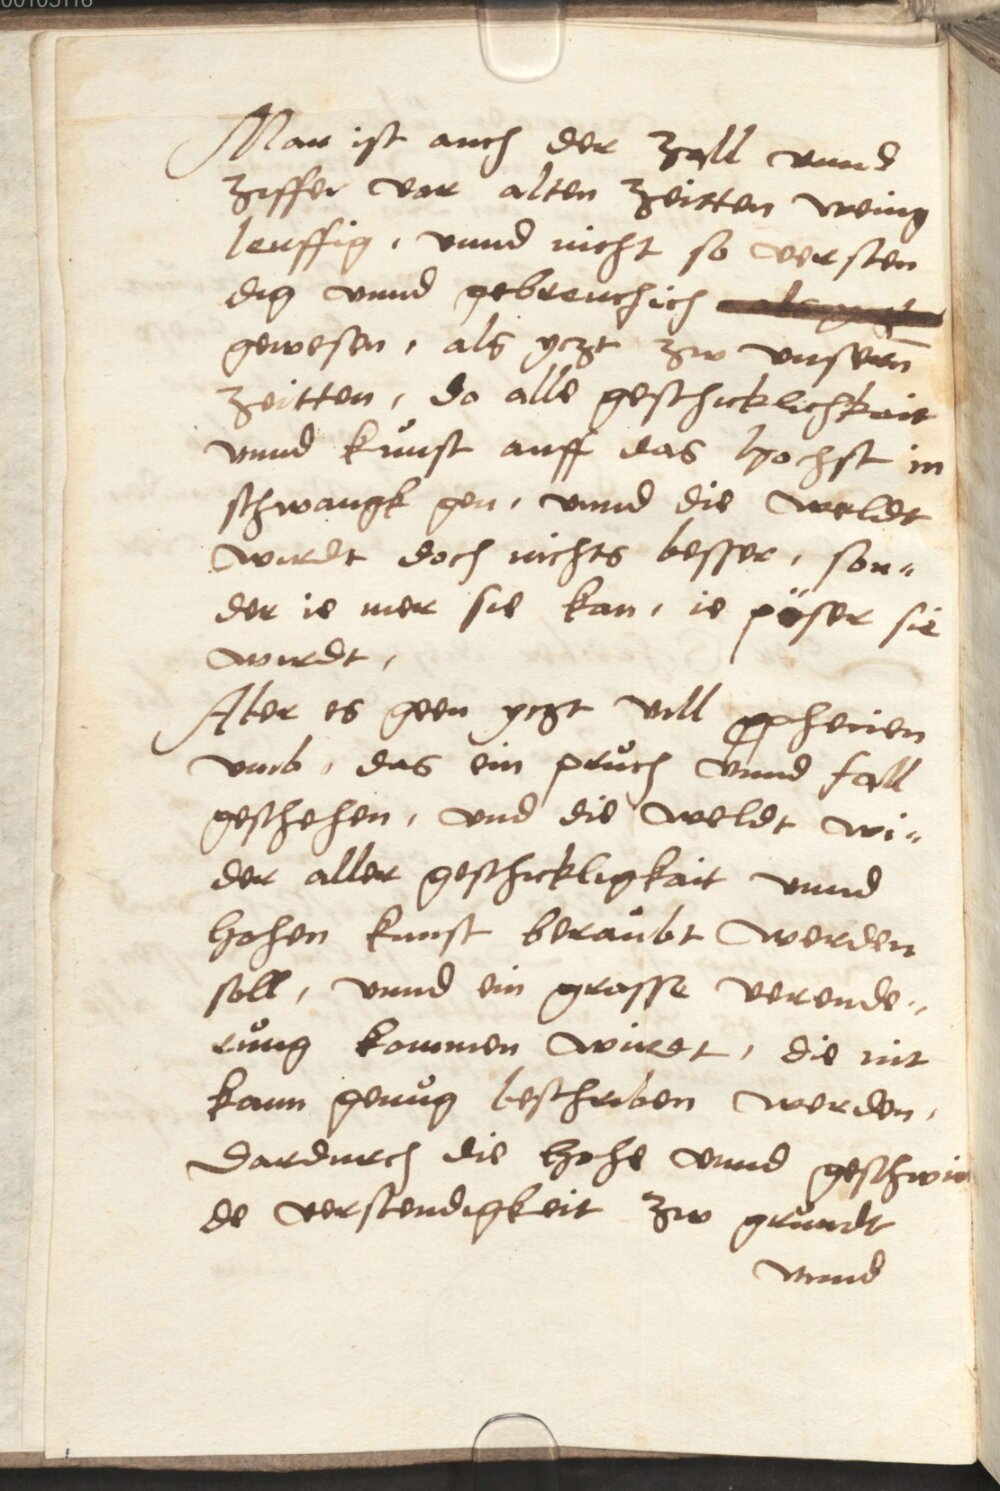 00103116
Man ist auch der Zall vnnd
Ziffer vor alten Zeitten wenig
leuffig, vnnd nicht so versten
dig vnnd gebreuchich als yczt
gewesen, als yczt zw vnsern̄
Zeitten, do alle geschicklichkait
vnnd kůnst auff das hochst in
schwangk gen, vnnd die weldt
wirdt doch nichts besser, son-
der ie mer sie kan, ie pöser sie
wirdt,
Aber es geen yczt vill ꝓphecien
vmb, das ein průch vnnd fall
geschehen, vnd die weldt wi-
der aller geschickligkait vnnd
hohen kunst beraůbt werden
soll, vnnd ein grosse verende-
růng kommen wirdt, die nit
kann genůg beschriben werden,
Dardurch die hohe vnnd geschwin
de verstendigkeit zw grůndt
vnnd